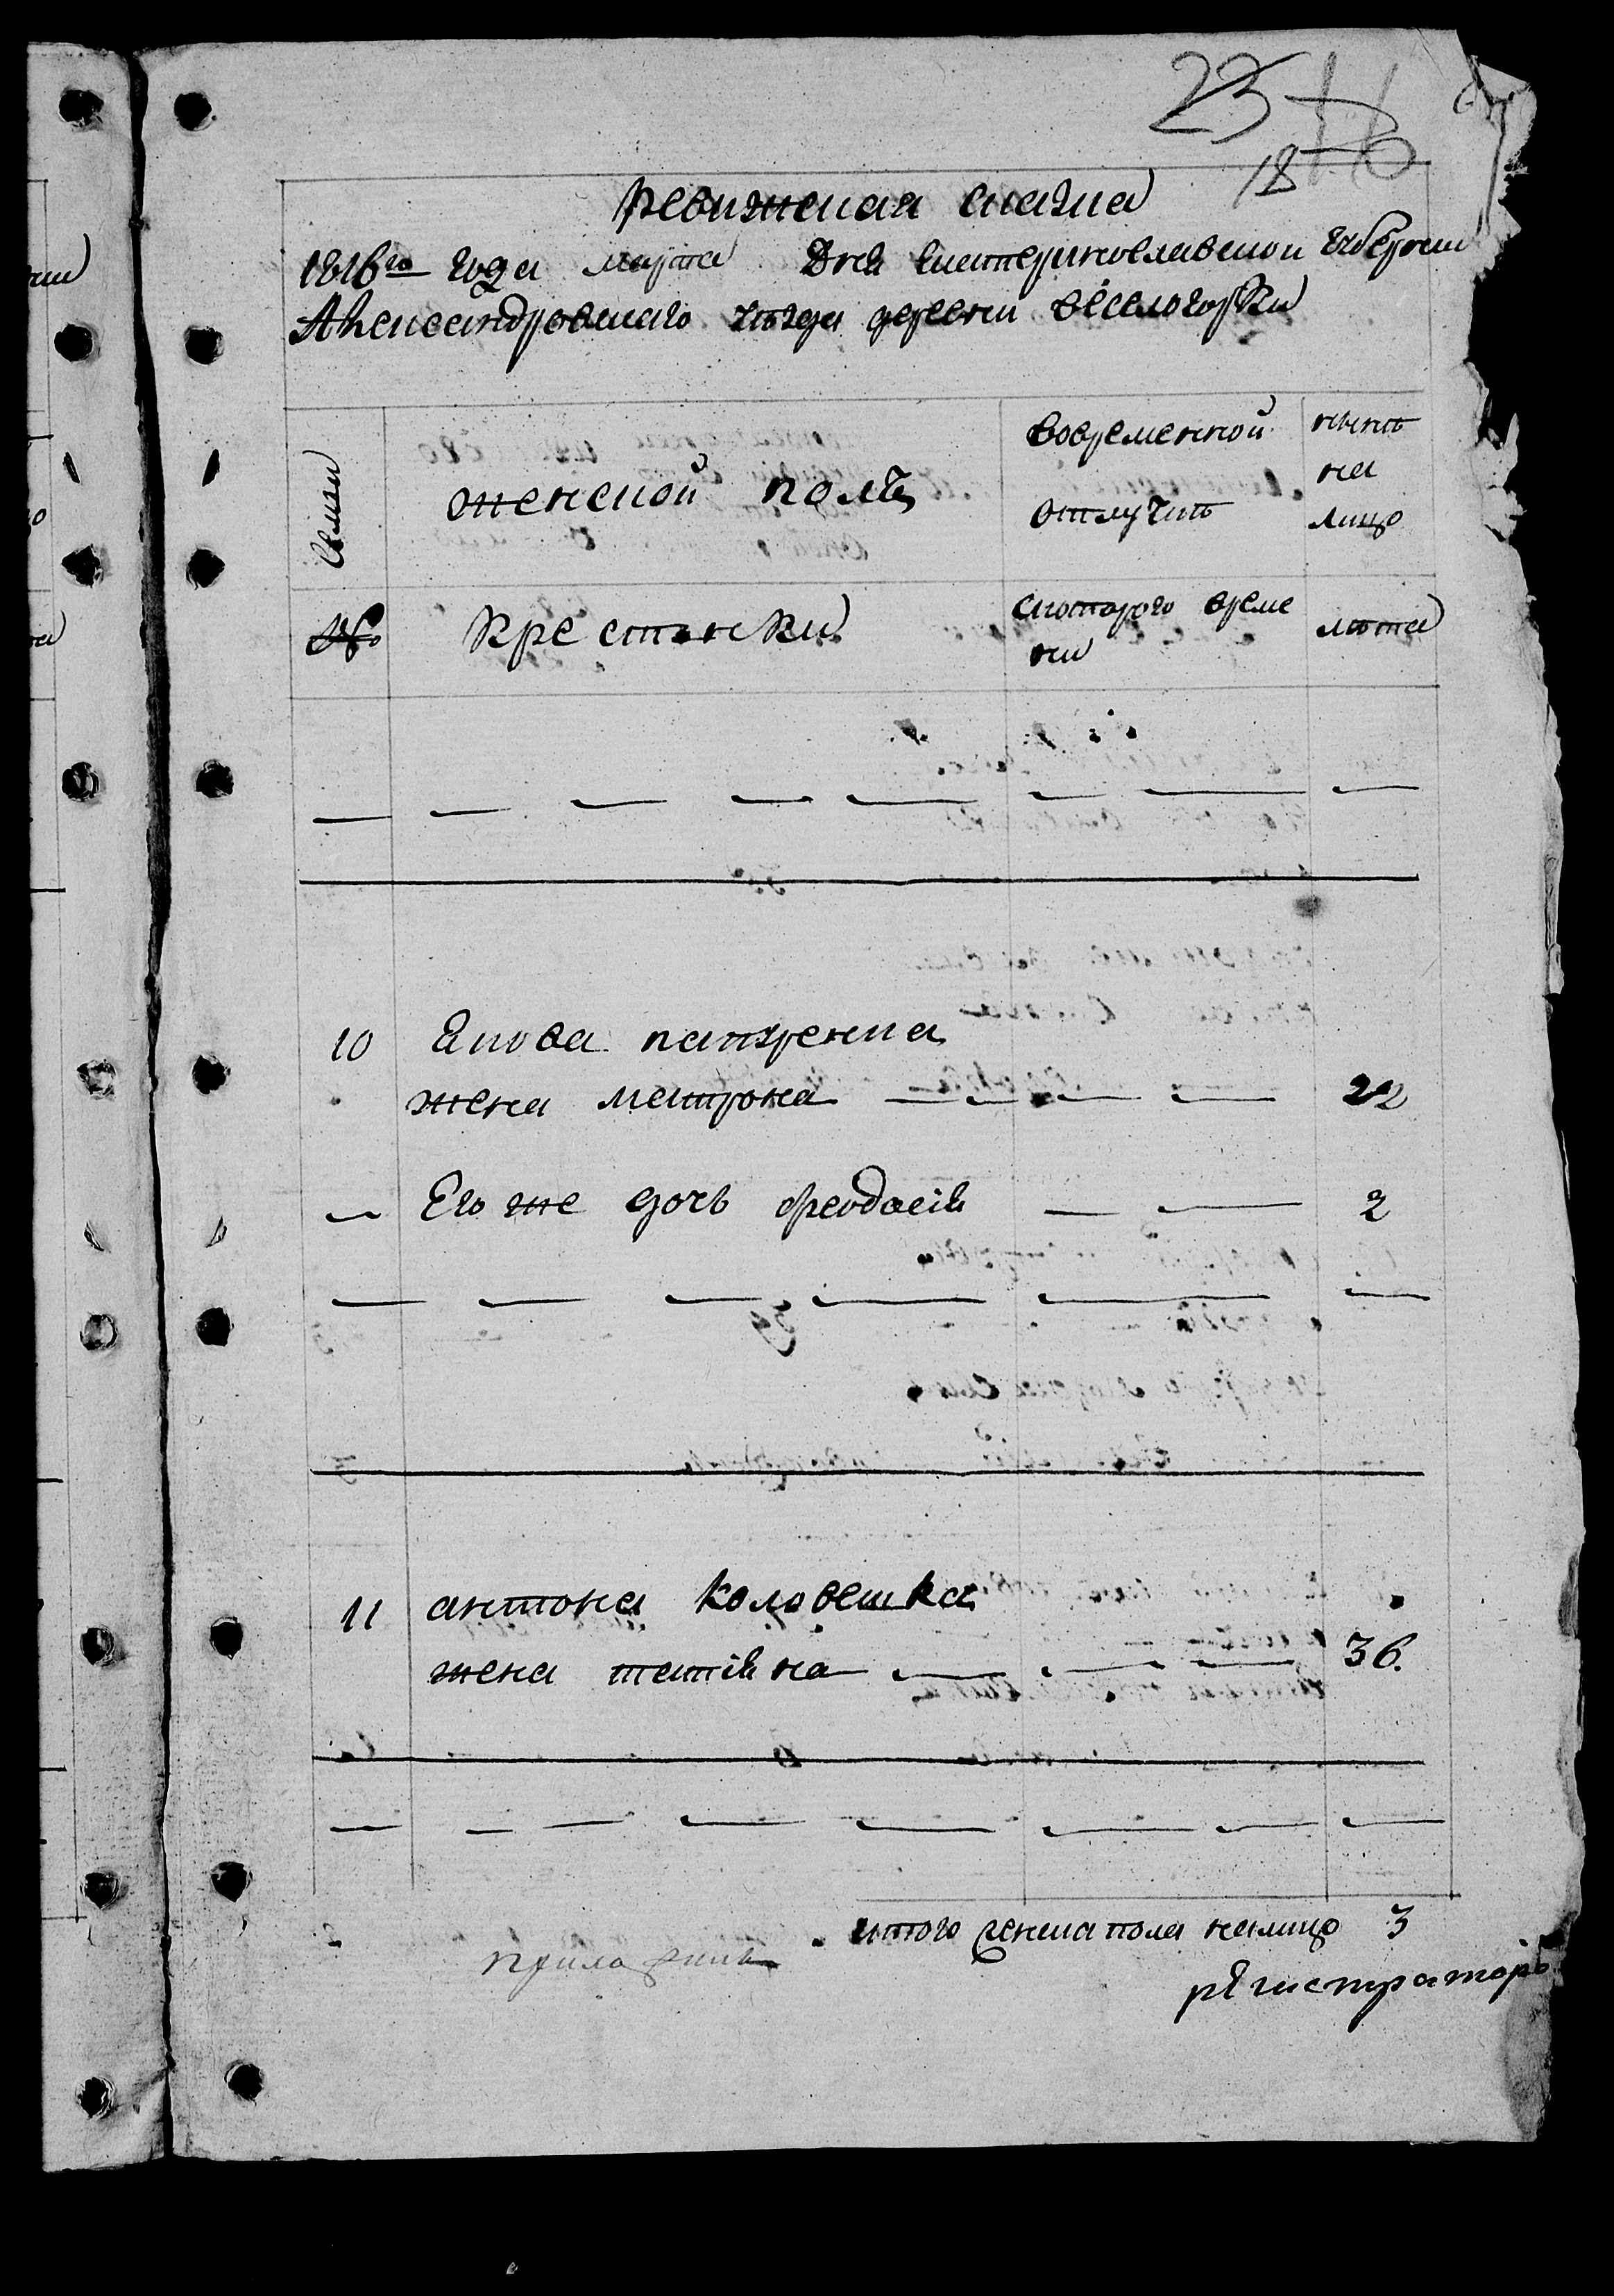 23
18
ревижская сказка
1816го года марта Дня Екатеринославской губернии
Александровского уезда деревни веселогорки
Семьи
женской полъ
вовременной отлучкъ
нынѣ на лицо
№
Крестьянки
скоторого време ни
лѣта
10 Якова патхрекина
жена матрона 22
Его же дочь феодосія 2
11 антона коловешка
жена татіяна 36.
итого женска пола налицо 3
регистраторъ